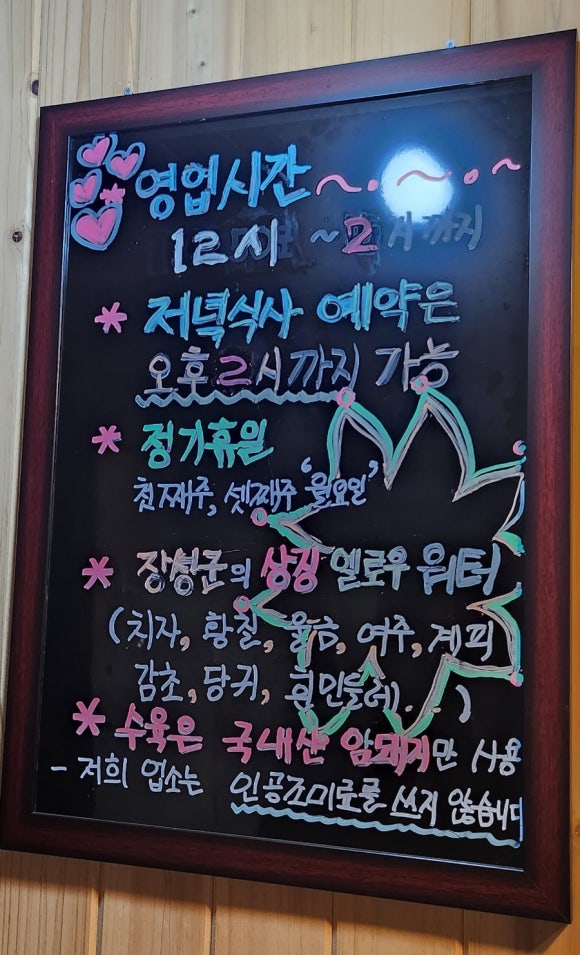 영업시간 ~.~.~
12시 ~ 2시까지
* 저녁식사 예약은
오후 2시까지 가능
* 정기휴일
첫째주, 셋째주 '월요일'
* 장성군의 상징 옐로우 워터
(치자, 황칠, 울금, 여주, 계피
감초, 당귀, 흰민들레)...)
* 수육은 국내산 암돼지만 사용
- 저희 업소는 인공조미료를 쓰지 않습니다